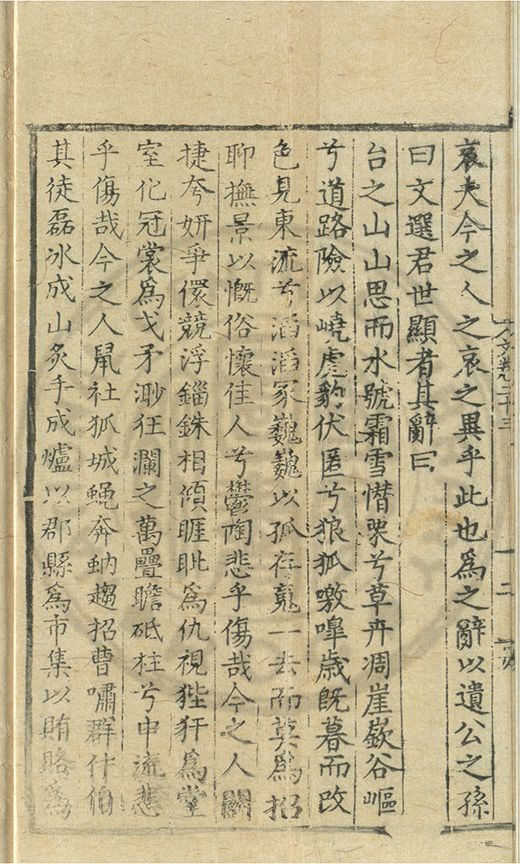 哀夫今之人之哀之異乎此也爲之辭以遺公之孫
曰文選君世顯者其辭曰
台之山山思而水號霜雪憯兮草卉凋崖嶔谷嶇
兮道路險以嶢虎豹伏匿兮狼狐噭嘷歲旣暮而改
色見東流兮滔滔冢巍巍以孤存䰟一去而莫爲招
聊撫景以慨俗懷佳人兮鬱陶悲乎傷哉今之人闘
捷夸妍爭儇競浮錙銖相傾睚眦爲仇視狴犴爲堂
室化冠裳爲戈矛渺狂瀾之萬疊瞻砥柱兮中流悲
乎傷哉今之人鼠社狐城蠅奔蚋趨招曹嘯群什伯
其徒磊冰成山炙手成爐以郡縣爲市集以賄賂爲